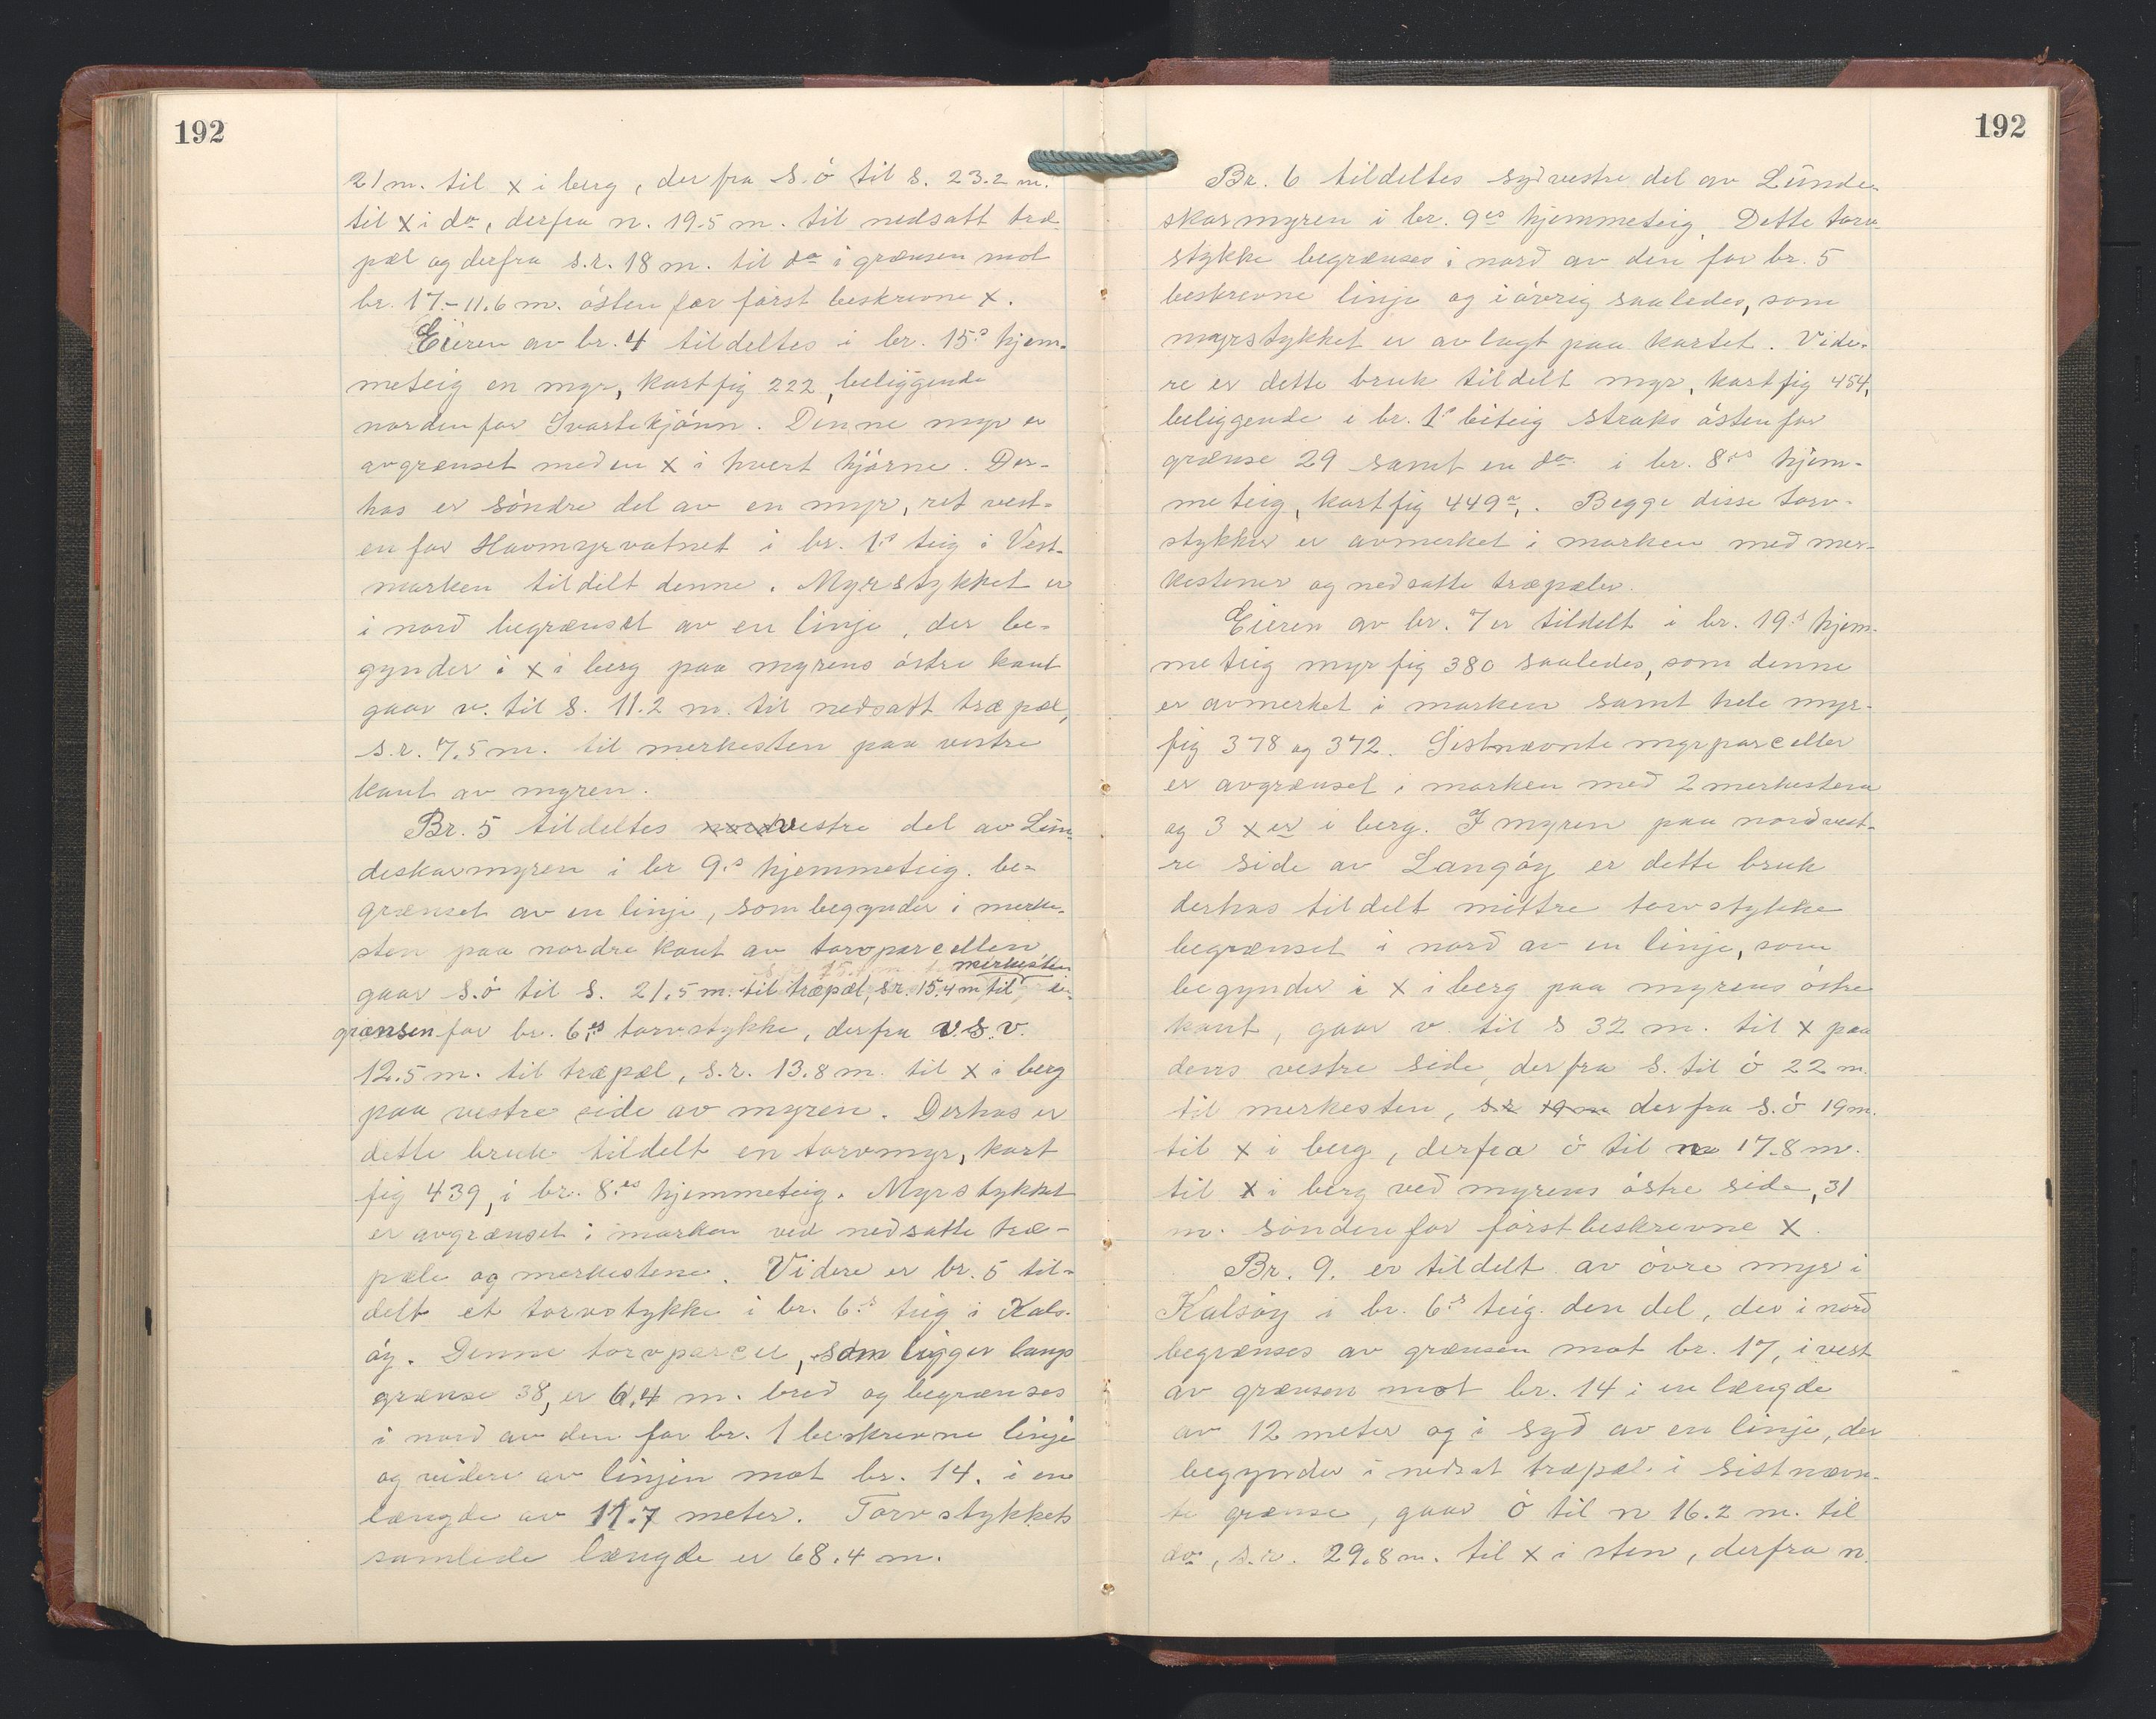 192
21 m. til x i berg, derfra s.ó til s. 23.2 m.
til x i do, derfra n. 19.5 m. til nedsatt træ-
pæl og derfra s.r. 18 m. til do i grænsen mot
br. 17 - 11.6 m. østen for først beskrevne x.
Eieren av br. 4 tildeltes i br. 15s hjem-
meteig en myr, kartfig 222, beliggende
norden for Svartekjónn. Denne myr er
avgrænset med en x i hvert hjórne. Der-
hos er sóndre del av en myr, ret vest-
en for Havmyrvatnet i br. 1s teig i Vest-
marken tildelt denne. Myrstykket er
i nord begrænset av en linje, der be-
gynder i x i berg paa myrens óstre kant
gaar v. til s. 11.2 m. til nedsatt træpæl,
s.r. 7.5 m. til merkesten paa vestre
kant av myren.
Br. 5 tildeltes nordvestre del av Lún-
deskarmyren i br 9s hjemmeteig. be-
grænset av en linje, som begynder i merke-
sten paa nordre kant av torvparcellen
merkesten
gaar s.ó til s. 21.5 m. til træpæl, sr. 15.4 m til i
grænsen for br. 6es torvstykke, derfra v.s.v.
12.5 m. til træpæl, s.r. 13.8 m. til x i berg
paa vestre side av myren. Derhos er
dette bruk tildelt en torvmyr, kart
fig 439, i br. 8es hjemmeteig. Myrstykket
er avgrænset i marken ved nedsatte træ-
pæle og merkestene. Videre er br. 5 til-
delt et torvstykke i br. 6s teig i Kals-
óy. Denne torvparcel, som ligger langs
grænse 38, er 6,4 m. bred og begrænses
i nord av den for br. 1 beskrevne linje
og videre av linjen mot br. 14. i en
længde av 11.7 meter. Torvstykkets
samlede længde er 68.4 m.
192
Br. 6 tildeltes sydvestre del av Lúnde-
skarmyren i br. 9es hjemmeteig. Dette torv-
stykke begrænses i nord av den for br. 5
beskrevne linje og i óvrig saaledes, som
myrstykket er avlagt paa kartet. Vide-
re er dette bruk tildelt myr, kartfig 454,
beliggende i br. 1s biteig straks ósten for
grænse 29 samt en do i br. 8es hjem-
meteig, kartfig 449a,. Begge disse torv-
stykker er avmerket i marken med mer-
kestener og nedsatte træpæler.
Eieren av br. 7 er tildelt i br. 19s hjem-
meteig myr fig 380 saaledes, som denne
er avmerket i marken samt hele myr-
fig 378 og 372. Sistnævnte myrparceller
er avgrænset i marken med 2 merkestene
og 3 x er i berg. I myren paa nordvest-
re side av Langóy er dette bruk
derhos tildelt mittre torvstykke
begrænset i nord av en linje, som
begynder i x i berg paa myrens óstre
kant, gaar v. til s 32 m. til x paa
dens vestre side, derfra s. til ó 22 m.
til merkesten, s.r. 19 m derfra s.ó 19 m.
til x i berg, derfra ó til n 17.8 m.
til x i berg ved myrens óstre side, 31
m. sónden for fórstbeskrevne x.
Br. 9. er tildelt av óvre myr i
Kalsóy i br. 6s teig. den del, der i nord
begrænses av grænsen mot br. 17, i vest
av grænsen mot br. 14 i en længde
av 12 meter og i syd av en linje, der
begynder i nedsat træpæl i sistnævn-
te grænse, gaar ó til n 16.2 m. til
do, s.r. 29.8 m. til x i sten, derfra n.